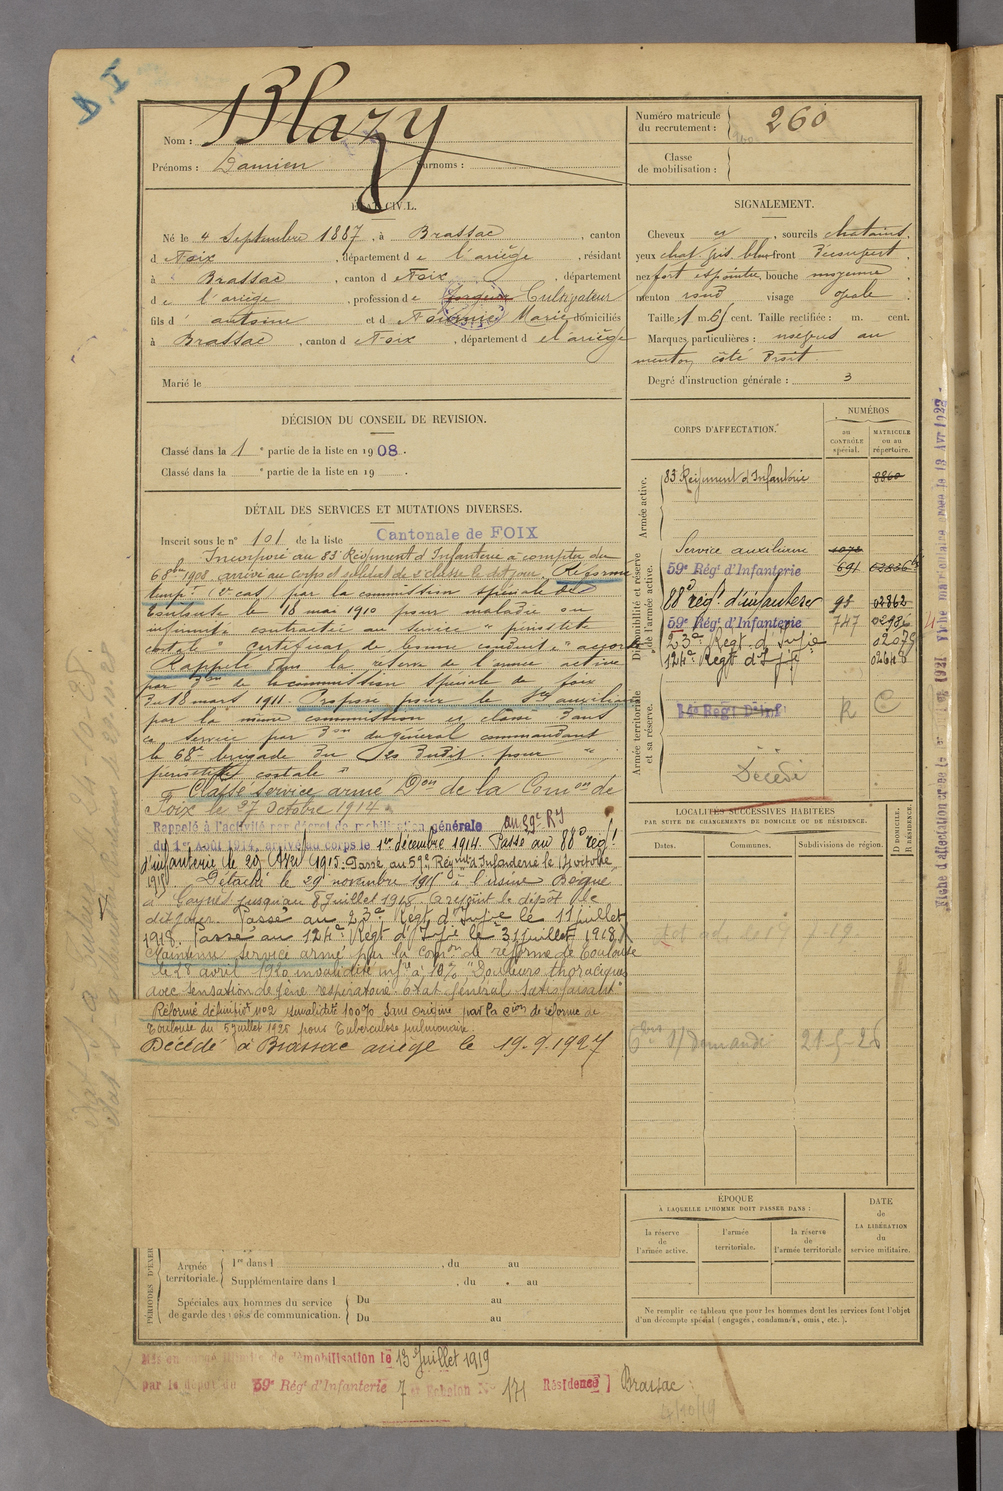 D.I
Blazy
Nom :
Prénoms : Damien Surnoms :
Numéro matricule
du recrutement : 260
Classe
de mobilisation :
ÉTAT CIVIL.
Né le 4 Septembre 1887, à Brassac, canton
d Foix, département de l'ariège, résidant
à Brassac, canton d Foix, département
de l'ariège, profession de Cultivateur
fils d' antoine et d Marie domiciliés
à Brassac, canton d Foix, département d el ariège
Marié le
SIGNALEMENT.
Cheveux et, sourcils chatains,
yeux chat. gris bleu front Découvert,
nez fort épointé, bouche moyenne
menton rond, visage ovale.
Taille : 1 m. 61 cent. Taille rectifiée : m. cent.
Marques particulières : au
menton côté Droit.
Degré d'instruction générale : 3
DÉCISION DU CONSEIL DE REVISION.
Classé dans la 1e partie de la liste en 1908.
Classé dans la e partie de la liste en 19 .
DÉTAIL DES SERVICES ET MUTATIONS DIVERSES.
Inscrit sous le n° 101 de la liste Cantonale de FOIX
Incorporé au 83 Régiment d'Infanterie à compter du
6 8bre 1908, arrivé au corps et soldat de 2e classe le dit jour. Réformé
temp. (1er cas) par la commission spéciale de
Toulouse le 18 mai 1910 pour maladie ou
infirmité contractée au service "périostite
costale" certificat de bonne conduite "accordé"
Rappelé dans la réserve de l'armée active
par Don de la commission spéciale de foix
du 18 mars 1911. Proposé pour le Sce auxiliaire
par la même commission et classé dans
ce service par Don du général commandant
la 68e brigade du 20 dudit pour
périostite costale"
Classé service armé Don de la Comon de
Foix le 27 octobre 1914
Rappelé à l'activité par décret de mobilisation générale au 59e RI
du 1er Août 1914, arrivé au corps le 1er décembre 1914. Passé au 88e rég!
d'infanterie le 29 1915. Passé au 59e Régiment d'Infanterie le 14 octobre
1915. Détaché le 29 novembre 1915 à l'usine
à jusqu'au 8 Juillet 1918, a rejoint le dépôt le
dit jour. Passé au 23e Régt d'Infie le 11 juillet
1918. Passé au 124e Régt d'Infie le 31 juillet 1918.
Maintenu service armé par la comon de réforme de Toulouse
le 28 avril 1920 invalidité infre à 10% "Douleurs thoraciques
avec sensation de gêne respiratoire. état général satisfaisant"
Réformé définitif no2 invalidité 100% Sans origine par la Cion de réforme de
Toulouse du 5 juillet 1926 pour Tuberculose pulmonaire.
Décédé à Brassac ariège le 19.9.1927
CORPS D'AFFECTATION.
NUMÉROS
au
CONTRÔLE
spécial.
MATRICULE
ou au
répertoire.
Armée active.
83 Régiment d'Infanterie 8860
Disponibilité et réserve
de l'armée active.
Service auxiliaire 1073
59e Régt d'Infanterie 691
88e rég! d'infanterie 98 02862
59e Régt d'Infanterie 747
23e Regt. d'Infie 02079
124e Regt d'Infie
Armée territoriale
et sa réserve.
14e Regt D'inf R C
Décédé
LOCALITÉS SUCCESSIVES HABITÉES
PAR SUITE DE CHANGEMENTS DE DOMICILE OU DE RÉSIDENCE.
Dates. Communes. Subdivisions de région.
D DOMICILE.
R RÉSIDENCE.
S/ Demande 21-5-26
ÉPOQUE
À LAQUELLE L'HOMME DOIT PASSER DANS :
la réserve
de
l'armée active.
l'armée
territoriale.
la réserve
de
l'armée territoriale
DATE
de
LA LIBÉRATION
du
service militaire.
PÉRIODES D'EXER
Armée
territoriale.
1re dans l , du au
Supplémentaire dans l , du au
Spéciales aux hommes du service
de garde des voies de communication.
Du au
Du au
Ne remplir ce tableau que pour les hommes dont les services font l'objet
d'un décompte spécial (engagés, condamnés, omis, etc.).
Mis en congé illimité de démobilisation le 13 Juillet 1919
par le dépôt du 59e Régt d'Infanterie 7e Echelon No 171 Résidence] Brassac
4/10/19